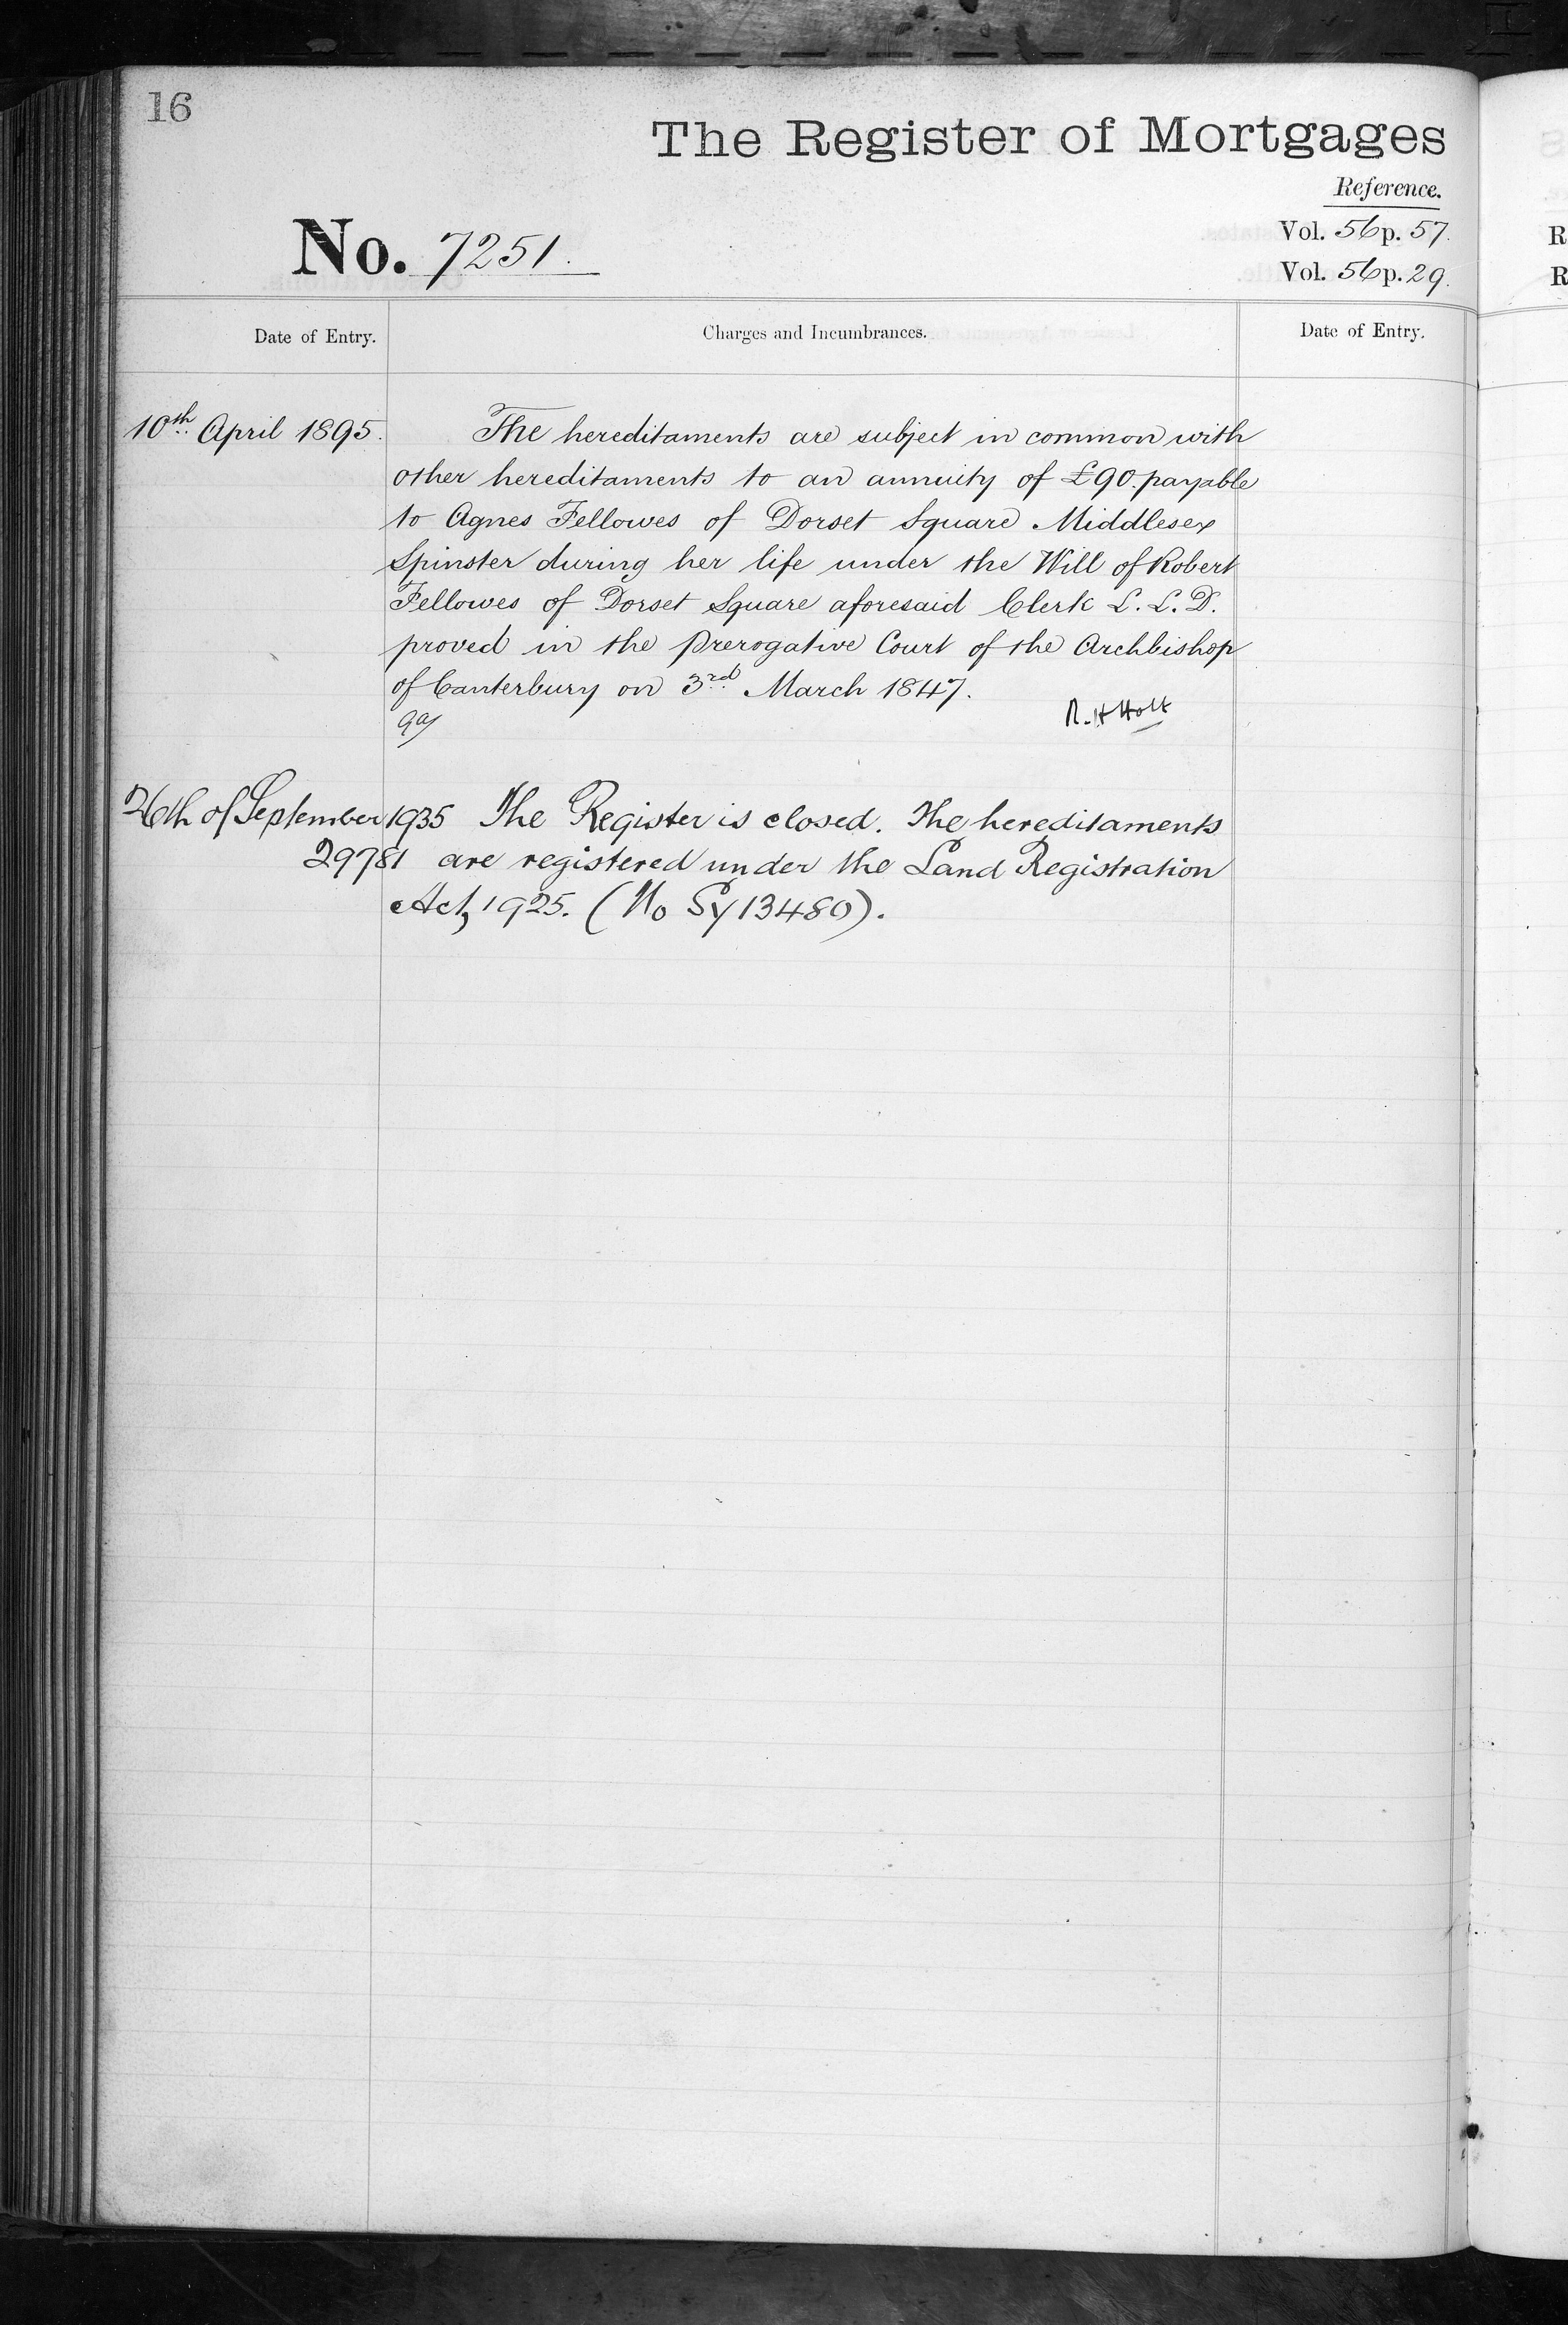 16
The Register of Mortgages
Reference.
No. 7251.
Vol. 56 p. 57.
Vol. 56 p. 29.
Date of Entry.
Charges and Incumbrances.
Date of Entry.
10th April 1895.
The hereditaments are subject in common with
other hereditaments to an annuity of £90 payable
to Agnes Fellowes of Dorset Square Middlesex
Spinster during her life under the Will of Robert
Fellowes of Dorset Square aforesaid Clerk L. L. D.
proved in the Prerogative Court of the Archbishop
of Canterbury on 3rd March 1847.
R. H Holt
26th of September 1935 The Register is closed. The hereditaments
29781 are registered under the Land Registration
Act, 1925. (No Sy 13480).
R
R